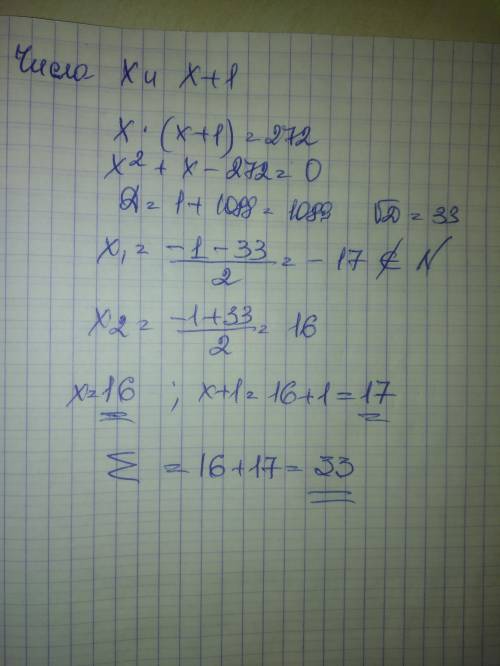 Числа x и x+1
x · (x+1) = 272
x² + x - 272 = 0
D = 1 + 1088 = 1089 √D = 33
x₁ = \frac{-1-33}{2} = -17 ∉ N
x₂ = \frac{-1+33}{2} = 16
x=16 ; x+1 = 16+1 = 17
Σ = 16+17 = 33